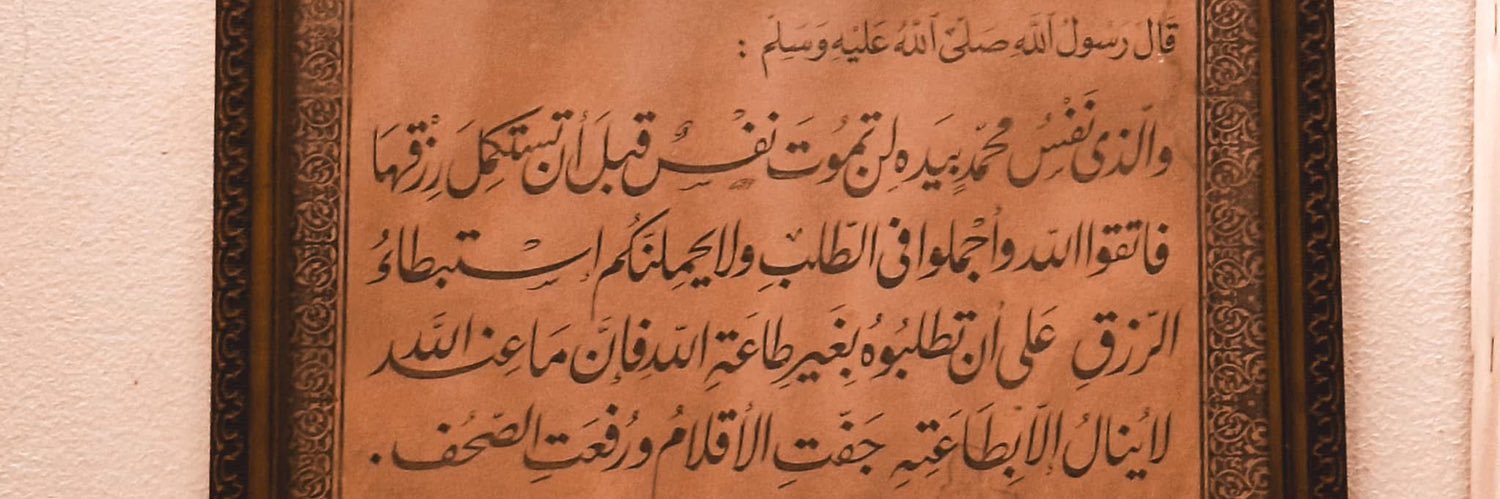 قَالَ رَسُولُ اللَّهِ صَلَّى اللَّهُ عَلَيْهِ وَسَلَّمَ :
والّذى نَفْسُ محمّدٍ بيَده لِن تمُوتَ نفْسٌ قبلَ أن تستكمِلَ رِزْقهَا
فاتقوا اللّه وأجْملوا فى الطّلبِ ولا يحمِلنَكُم إسْتبطاءُ
الرّزقِ عَلى أن تطلبُوهُ بِغَيرِ طاعَةِ اللّه فإنَّ مَا عِند اللَّه
لا يُنالُ إلّا بِطَاعَتِهِ جَفّتِ الأقلامُ ورُفعَتِ الصّحُف .